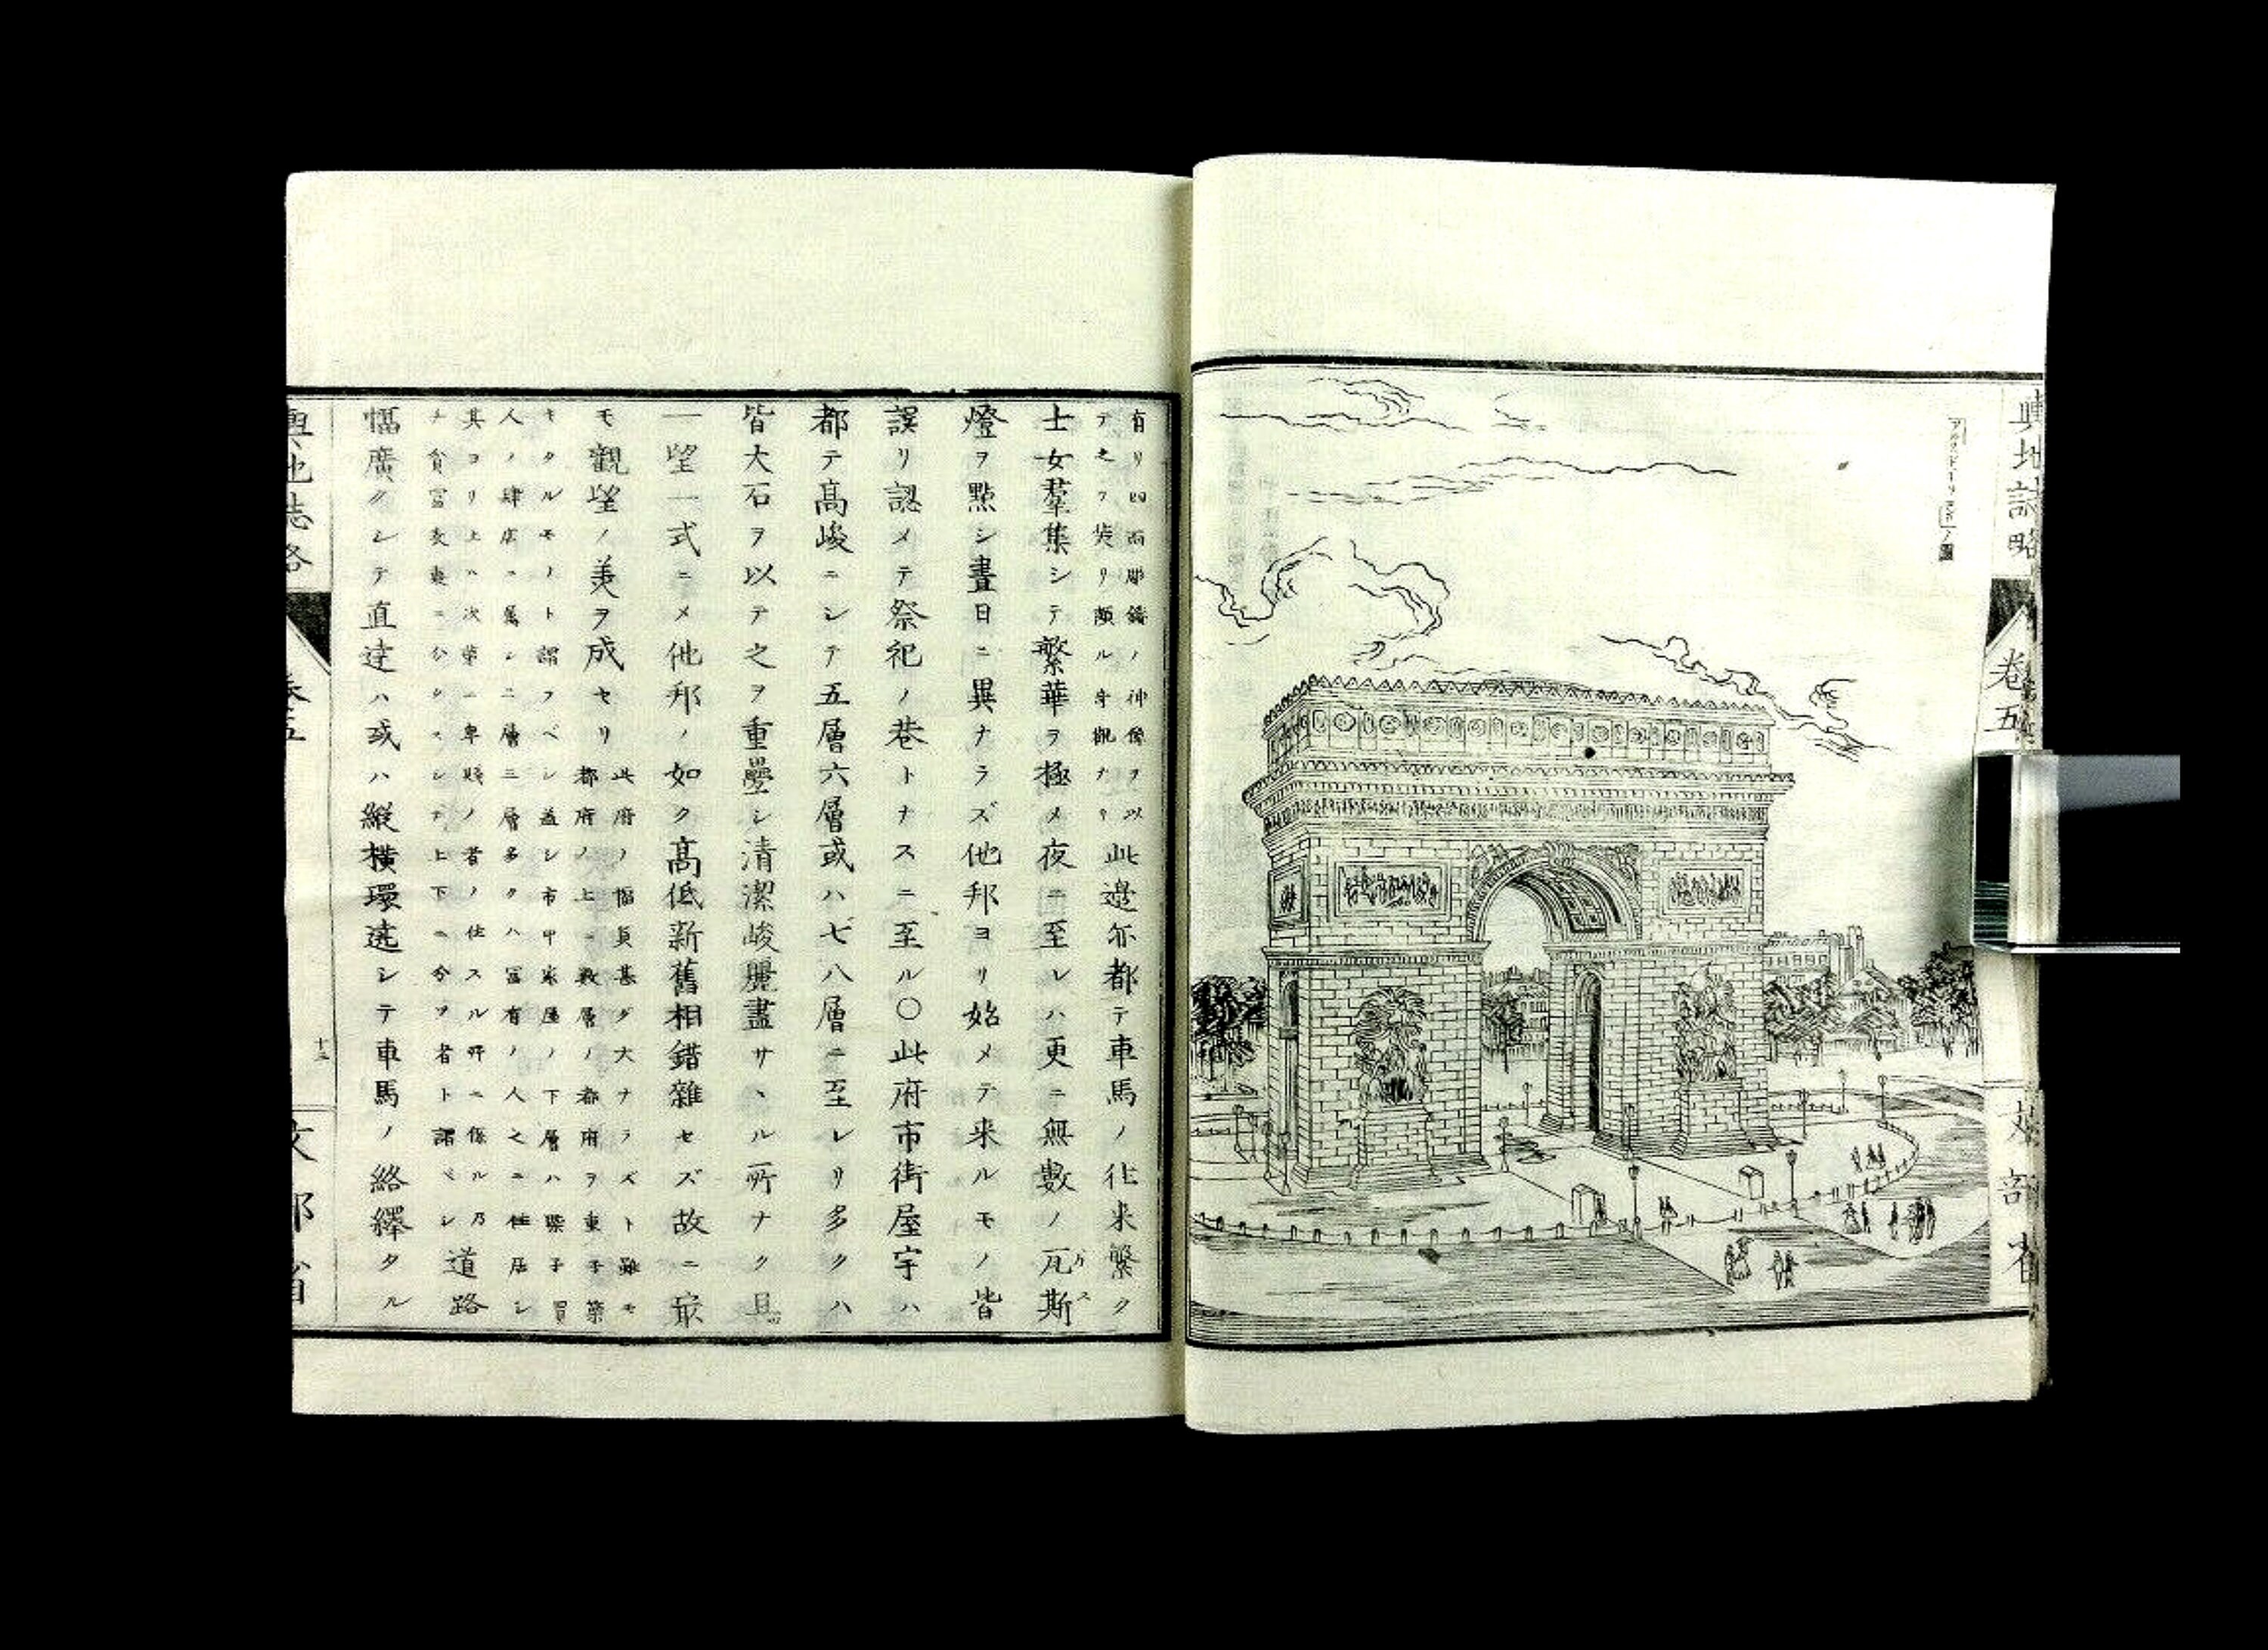 輿地誌略
卷五
文部省
有リ四面彫鏤ノ神像ヲ以
テ之ヲ裝リ頗ル奇觀ナリ
此邉亦都テ車馬ノ徃来繁ク
士女羣集シテ繁華ヲ極メ夜ニ至レハ更ニ無數ノ瓦斯
ガス
燈ヲ點シ晝日ニ異ナラズ他邦ヨリ始メテ来ルモノ皆
誤リ認メテ祭祀ノ巷トナスニ至ル〇此府市街屋宇ハ
都テ高峻ニシテ五層六層或ハ七八層ニ至レリ多クハ
皆大石ヲ以テ之ヲ重疊シ清潔峻麗盡サヽル所ナク且
一望一式ニメ他邦ノ如ク高低新舊相錯雜セズ故ニ㝡
モ觀望ノ美ヲ成セリ
此府ノ幅員甚ダ大ナラズト雖モ
都府ノ上ニ數層ノ都府ヲ重子築
キタルモノト謂フベシ蓋シ市中家屋ノ下層ハ槩子買
人ノ肆店ニ属シ二層三層多クハ冨有ノ人之ニ住居シ
其ヨリ上ハ次第ニ卑賤ノ者ノ住スル所ニ係ル乃
チ貧冨表裏ニ分タスシテ上下ニ分ツ者ト謂ベシ
道路
幅廣クシテ直達ハ或ハ縱横環遶シテ車馬ノ絡繹タル
輿地誌略
卷五
十二
文部省